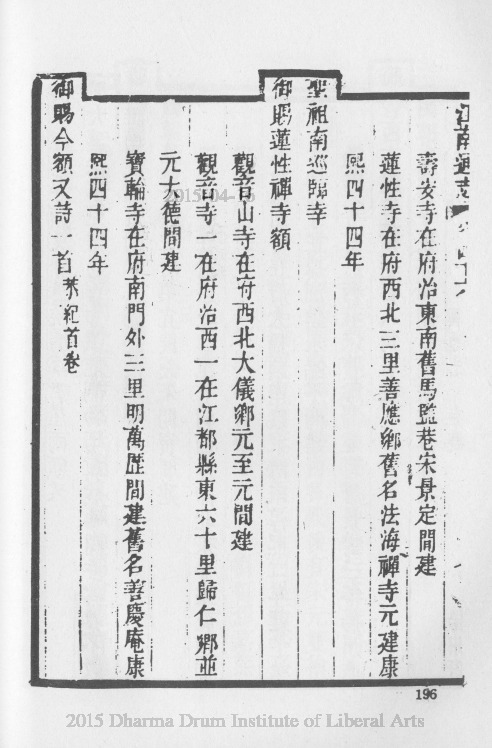 江南通志
壽安寺在府治東南舊馬監巷宋景定間建
蓮性寺在府西北三里善應鄉舊名法海禪寺元建康
熙四十四年
聖祖南巡臨幸
御賜蓮性禪寺額
觀音山寺在府西北大儀鄉元至元間建
觀音寺一在府治西一在江都縣東六十里歸仁鄉並
元大德間建
寶輪寺在府南門外三里明萬歷間建舊名善慶庵康
熙四十四年
御賜今額又詩一首恭紀首卷
196
2015 Dharma Drum Institute of Liberal Arts